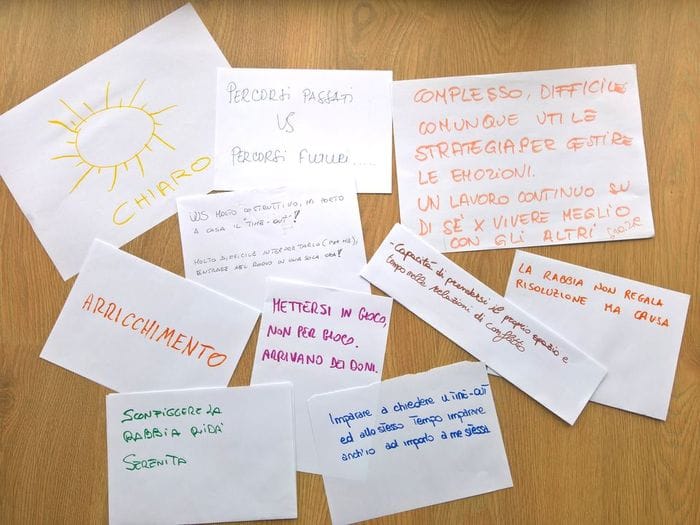 CHIARO
PERCORSI PASSATI
VS
PERCORSI FUTURI.....
COMPLESSO, DIFFICILE
COMUNQUE UTILE
STRATEGIA PER GESTIRE
LE EMOZIONI.
UN LAVORO CONTINUO SU
DI SÉ X VIVERE MEGLIO
CON GLI ALTRI
MOLTO COSTRUTTIVO, MI PORTO
A CASA IL "TIME-OUT"!
MOLTO DIFFICILE INTERPRETARLO (PER ME),
ENTRARE NEL RUOLO IN UNA SOLA ORA!
- Capacità di prendersi il proprio spazio e
tempo nelle relazioni di conflitto
LA RABBIA NON REGALA
RISOLUZIONE MA CAUSA
ARRICCHIMENTO
METTERSI IN GIOCO,
NON PER GIOCO.
ARRIVANO DEI DONI.
SCONFIGGERE LA
RABBIA RIDÀ
SERENITÀ
Imparare a chiedere il TIME-OUT
ed allo stesso Tempo imparare
anch'io ad imporlo a me stessa